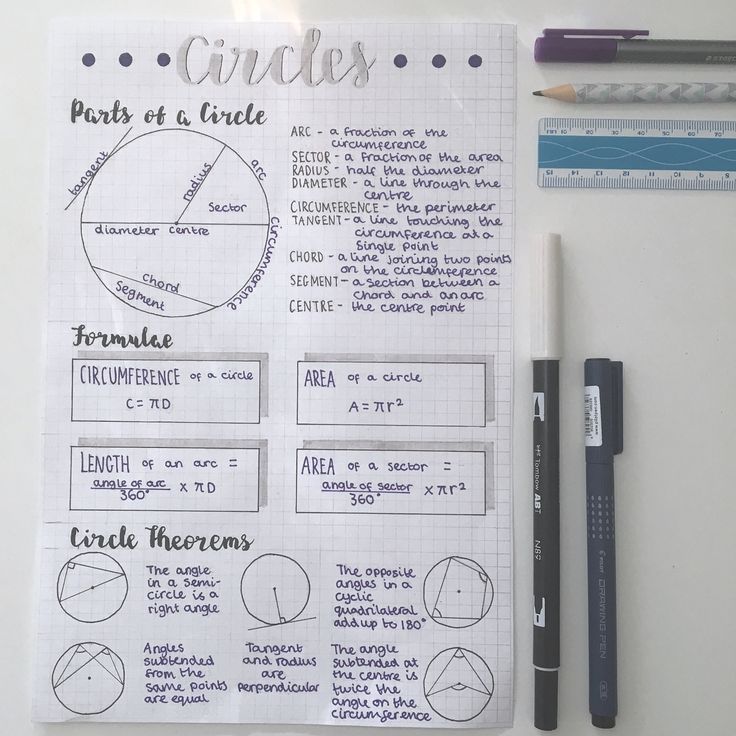 Circles
Parts of a Circle
tangent
radius
arc
Sector
diameter centre
circumference
chord
Segment
ARC - a fraction of the
circumference
SECTOR - a fraction of the area
RADIUS - half the diameter
DIAMETER - a line through the
centre
CIRCUMFERENCE - the perimeter
TANGENT - a line touching the
circumference at a
single point
CHORD - a line joining two points
on the circlemference
SEGMENT - a section between a
chord and an arc
CENTRE - the centre point
Formulae
CIRCUMFERENCE of a circle
C = πD
AREA of a circle
A = πr²
LENGTH of an arc =
angle of arc
360° x πD
AREA of a sector =
angle of sector
360° x πr²
Circle Theorems
The angle
in a semi-
circle is a
right angle
The opposite
angles in a
cyclic
quadrilateral
add up to 180°
Angles
subtended
from the
same points
are equal
Tangent
and radius
are
perpendicular
The angle
subtended at
the centre is
twice the
angle on the
circumference
15 14 13 12 11 10
Tombow ABT
N89
PILOT DRAWING PEN